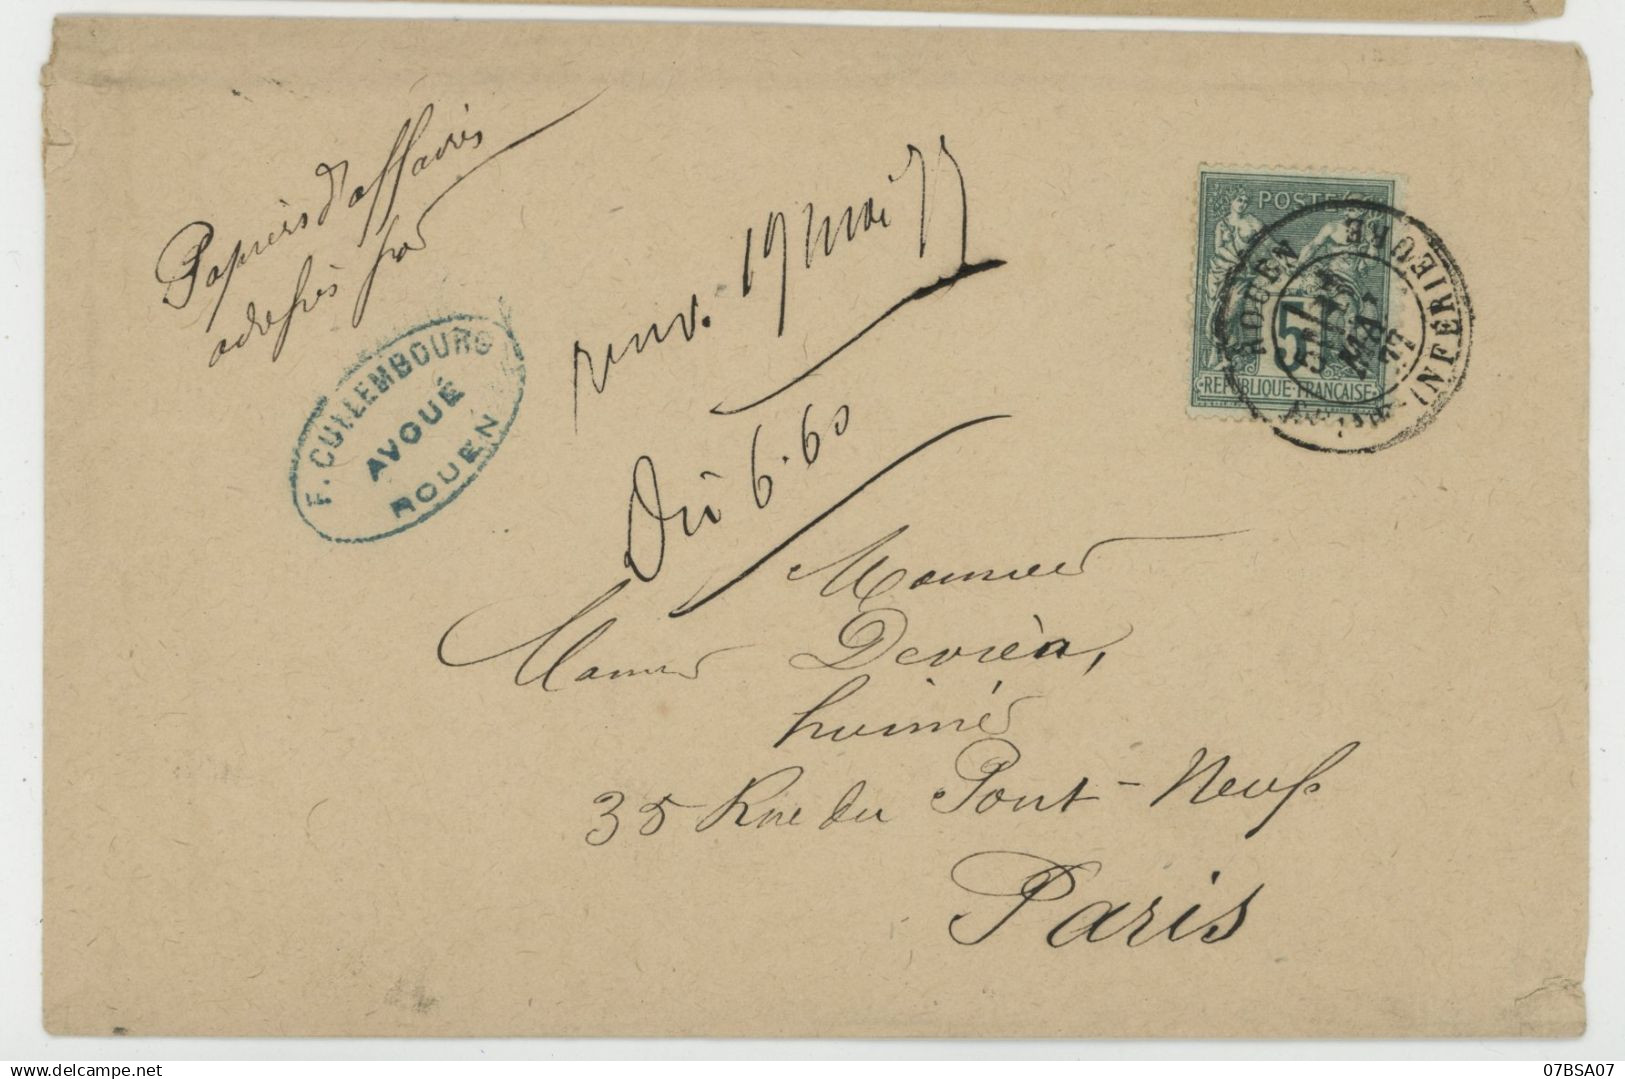 Papiers d'affaires
adressés par
F. CULLEMBOURG
AVOUÉ
ROUEN
renv. 19 mai 77
Dû 6.60
POSTE
5
REPUBLIQUE FRANÇAISE
ROUEN
INFÉRIEURE
MAI
77
Monsieur
Devrèn,
huissier
35 Rue du Pont-Neuf
Paris
07BSA07